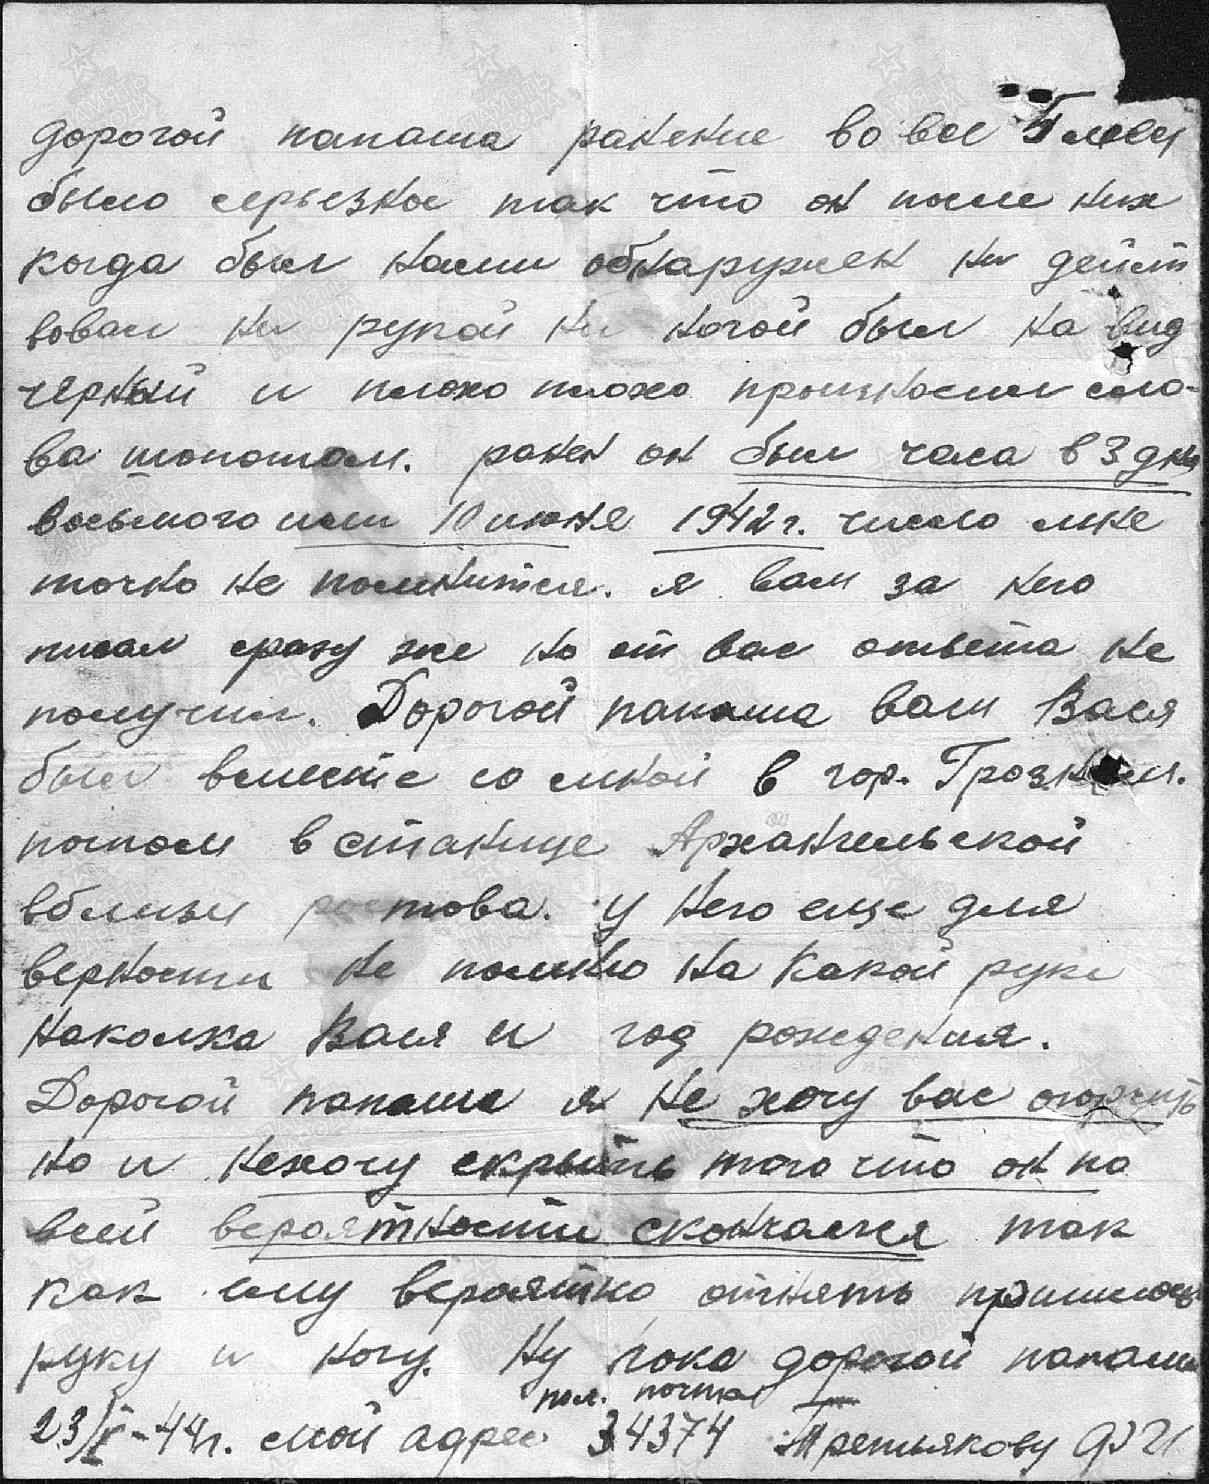 дорогой папаша ранение во все
было серьезное так что он после них
когда был нами обнаружен не дейст
вовал ни рукой ни ногой был на вид
черный и плохо плохо произносил сло-
ва шопотом. ранен он был часа в 3 дня
восьмого или 10 июня 1942 г. число мне
точно не помнится. я вам за него
писал сразу же но от вас ответа не
получил. Дорогой папаша ваш Вася
был вместе со мной в гор. Грозном.
потом в станице Архангельской
вблизи ростова. у него еще для
верности не помню на какой руке
наколка Вася и год рождения.
Дорогой папаша я не хочу вас огорчить
но и нехочу скрыть того что он по
всей вероятности скончался так
как ему вероятно отнять пришлось
руку и ногу. Ну пока дорогой папаша
пол. почта
23/ -44 г. мой адрес 34374 Третьякову